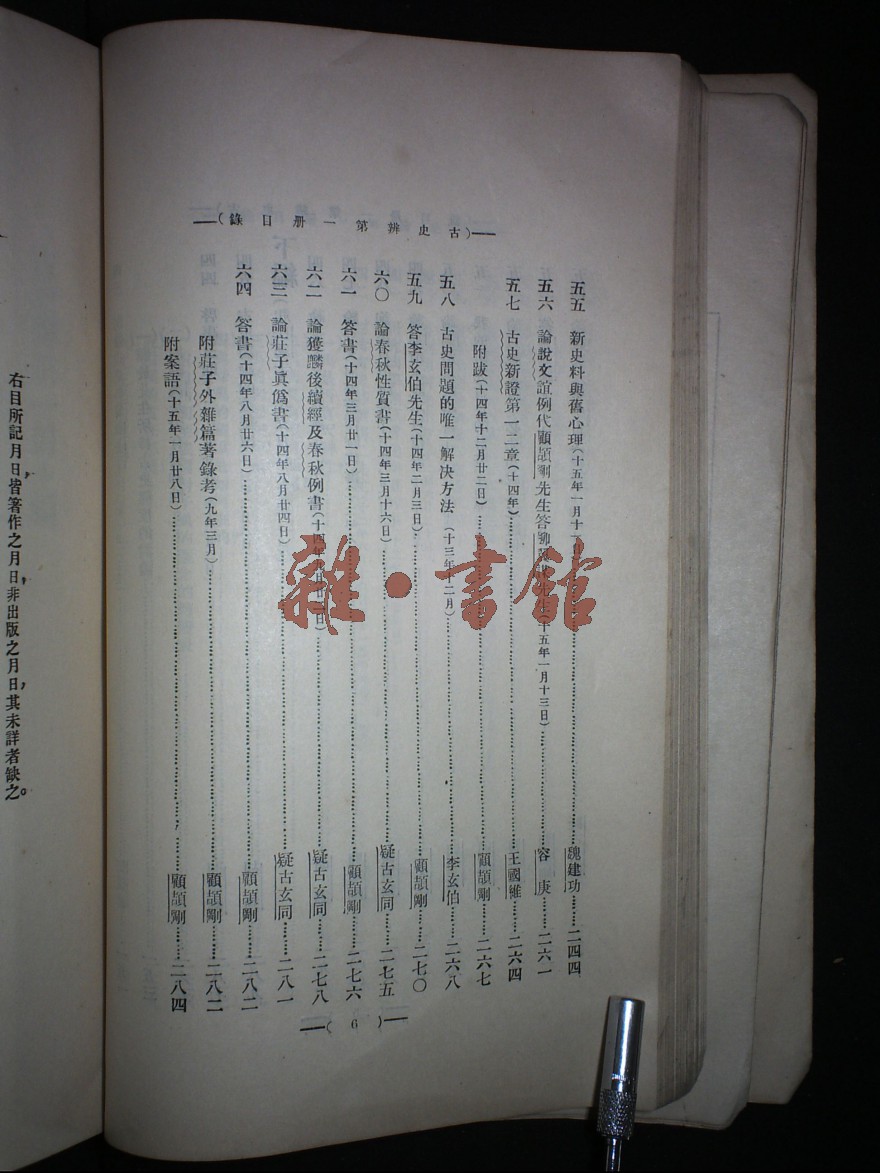 古史辨第一册目錄
五五 新史料與舊心理(十五年一月十 魏建功 二四四
五六 論說文誼例代顧頡剛先生答 先生(十五年一月十三日) 容庚 二六一
五七 古史新證第一二章(十四年) 王國維 二六四
附跋(十四年十二月廿二日) 顧頡剛 二六七
五八 古史問題的唯一解决方法(十三年十二月) 李玄伯 二六八
五九 答李玄伯先生(十四年二月三日) 顧頡剛 二七〇
六〇 論春秋性質書(十四年三月十六日) 疑古玄同 二七五
六一 答書(十四年三月廿一日) 顧頡剛 二七六
六二 論獲麟後續經及春秋例書(十四年 月 日) 疑古玄同 二七八
六三 論莊子眞僞書(十四年八月廿四日) 疑古玄同 二八一
六四 答書(十四年八月廿六日) 顧頡剛 二八二
附莊子外雜篇著錄考(九年三月) 顧頡剛 二八二
附案語(十五年一月廿八日) 顧頡剛 二八四
(6)
右目所記月日皆著作之月日,非出版之月日,其未詳者缺之。
雜·書館